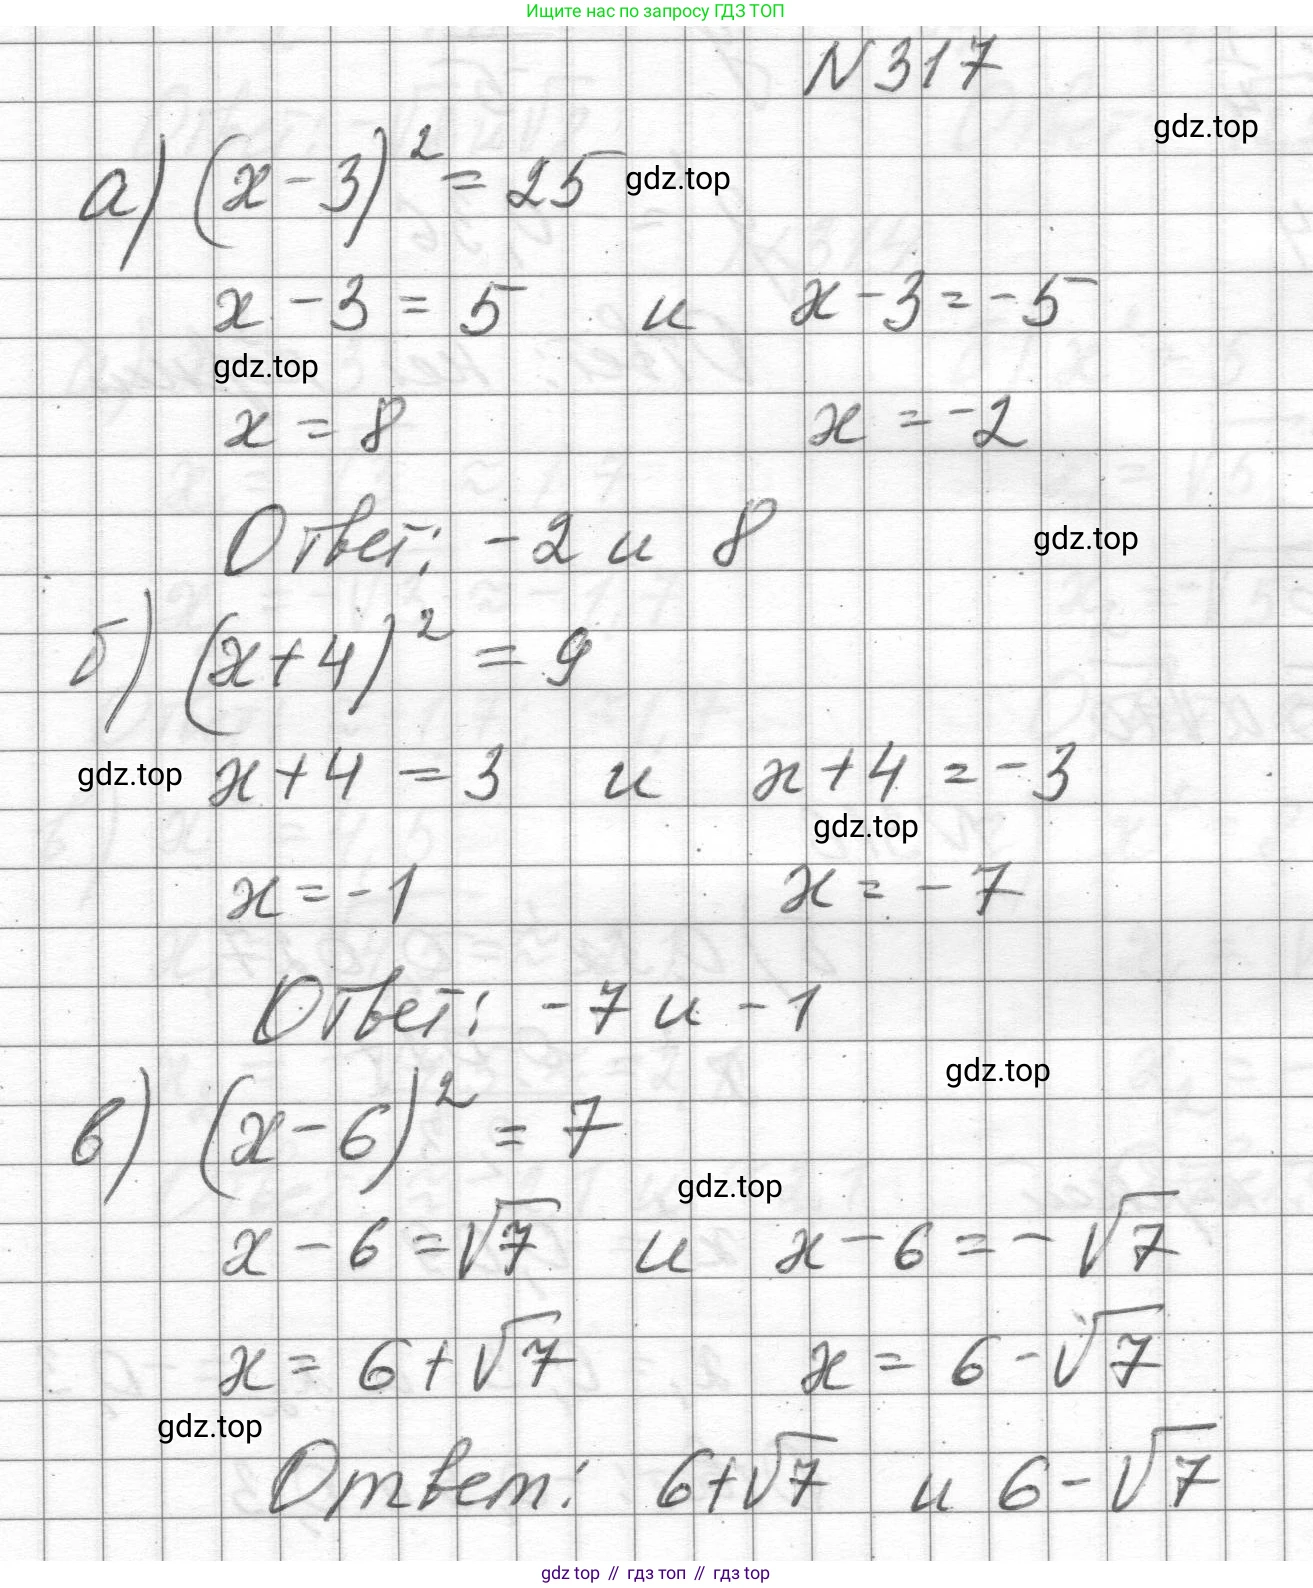 Ищите нас по запросу ГДЗ ТОП
N 317
gdz.top
а) (x-3)² = 25 gdz.top
x - 3 = 5 и x - 3 = -5
gdz.top
x = 8 x = -2
Ответ: -2 и 8 gdz.top
б) (x+4)² = 9
gdz.top x+4 = 3 и x+4 = -3
gdz.top
x = -1 x = -7
Ответ: -7 и -1
gdz.top
в) (x-6)² = 7
gdz.top
x - 6 = √7 и x - 6 = -√7
x = 6+√7 x = 6-√7
gdz.top
Ответ: 6+√7 и 6-√7
gdz top // гдз топ // гдз top